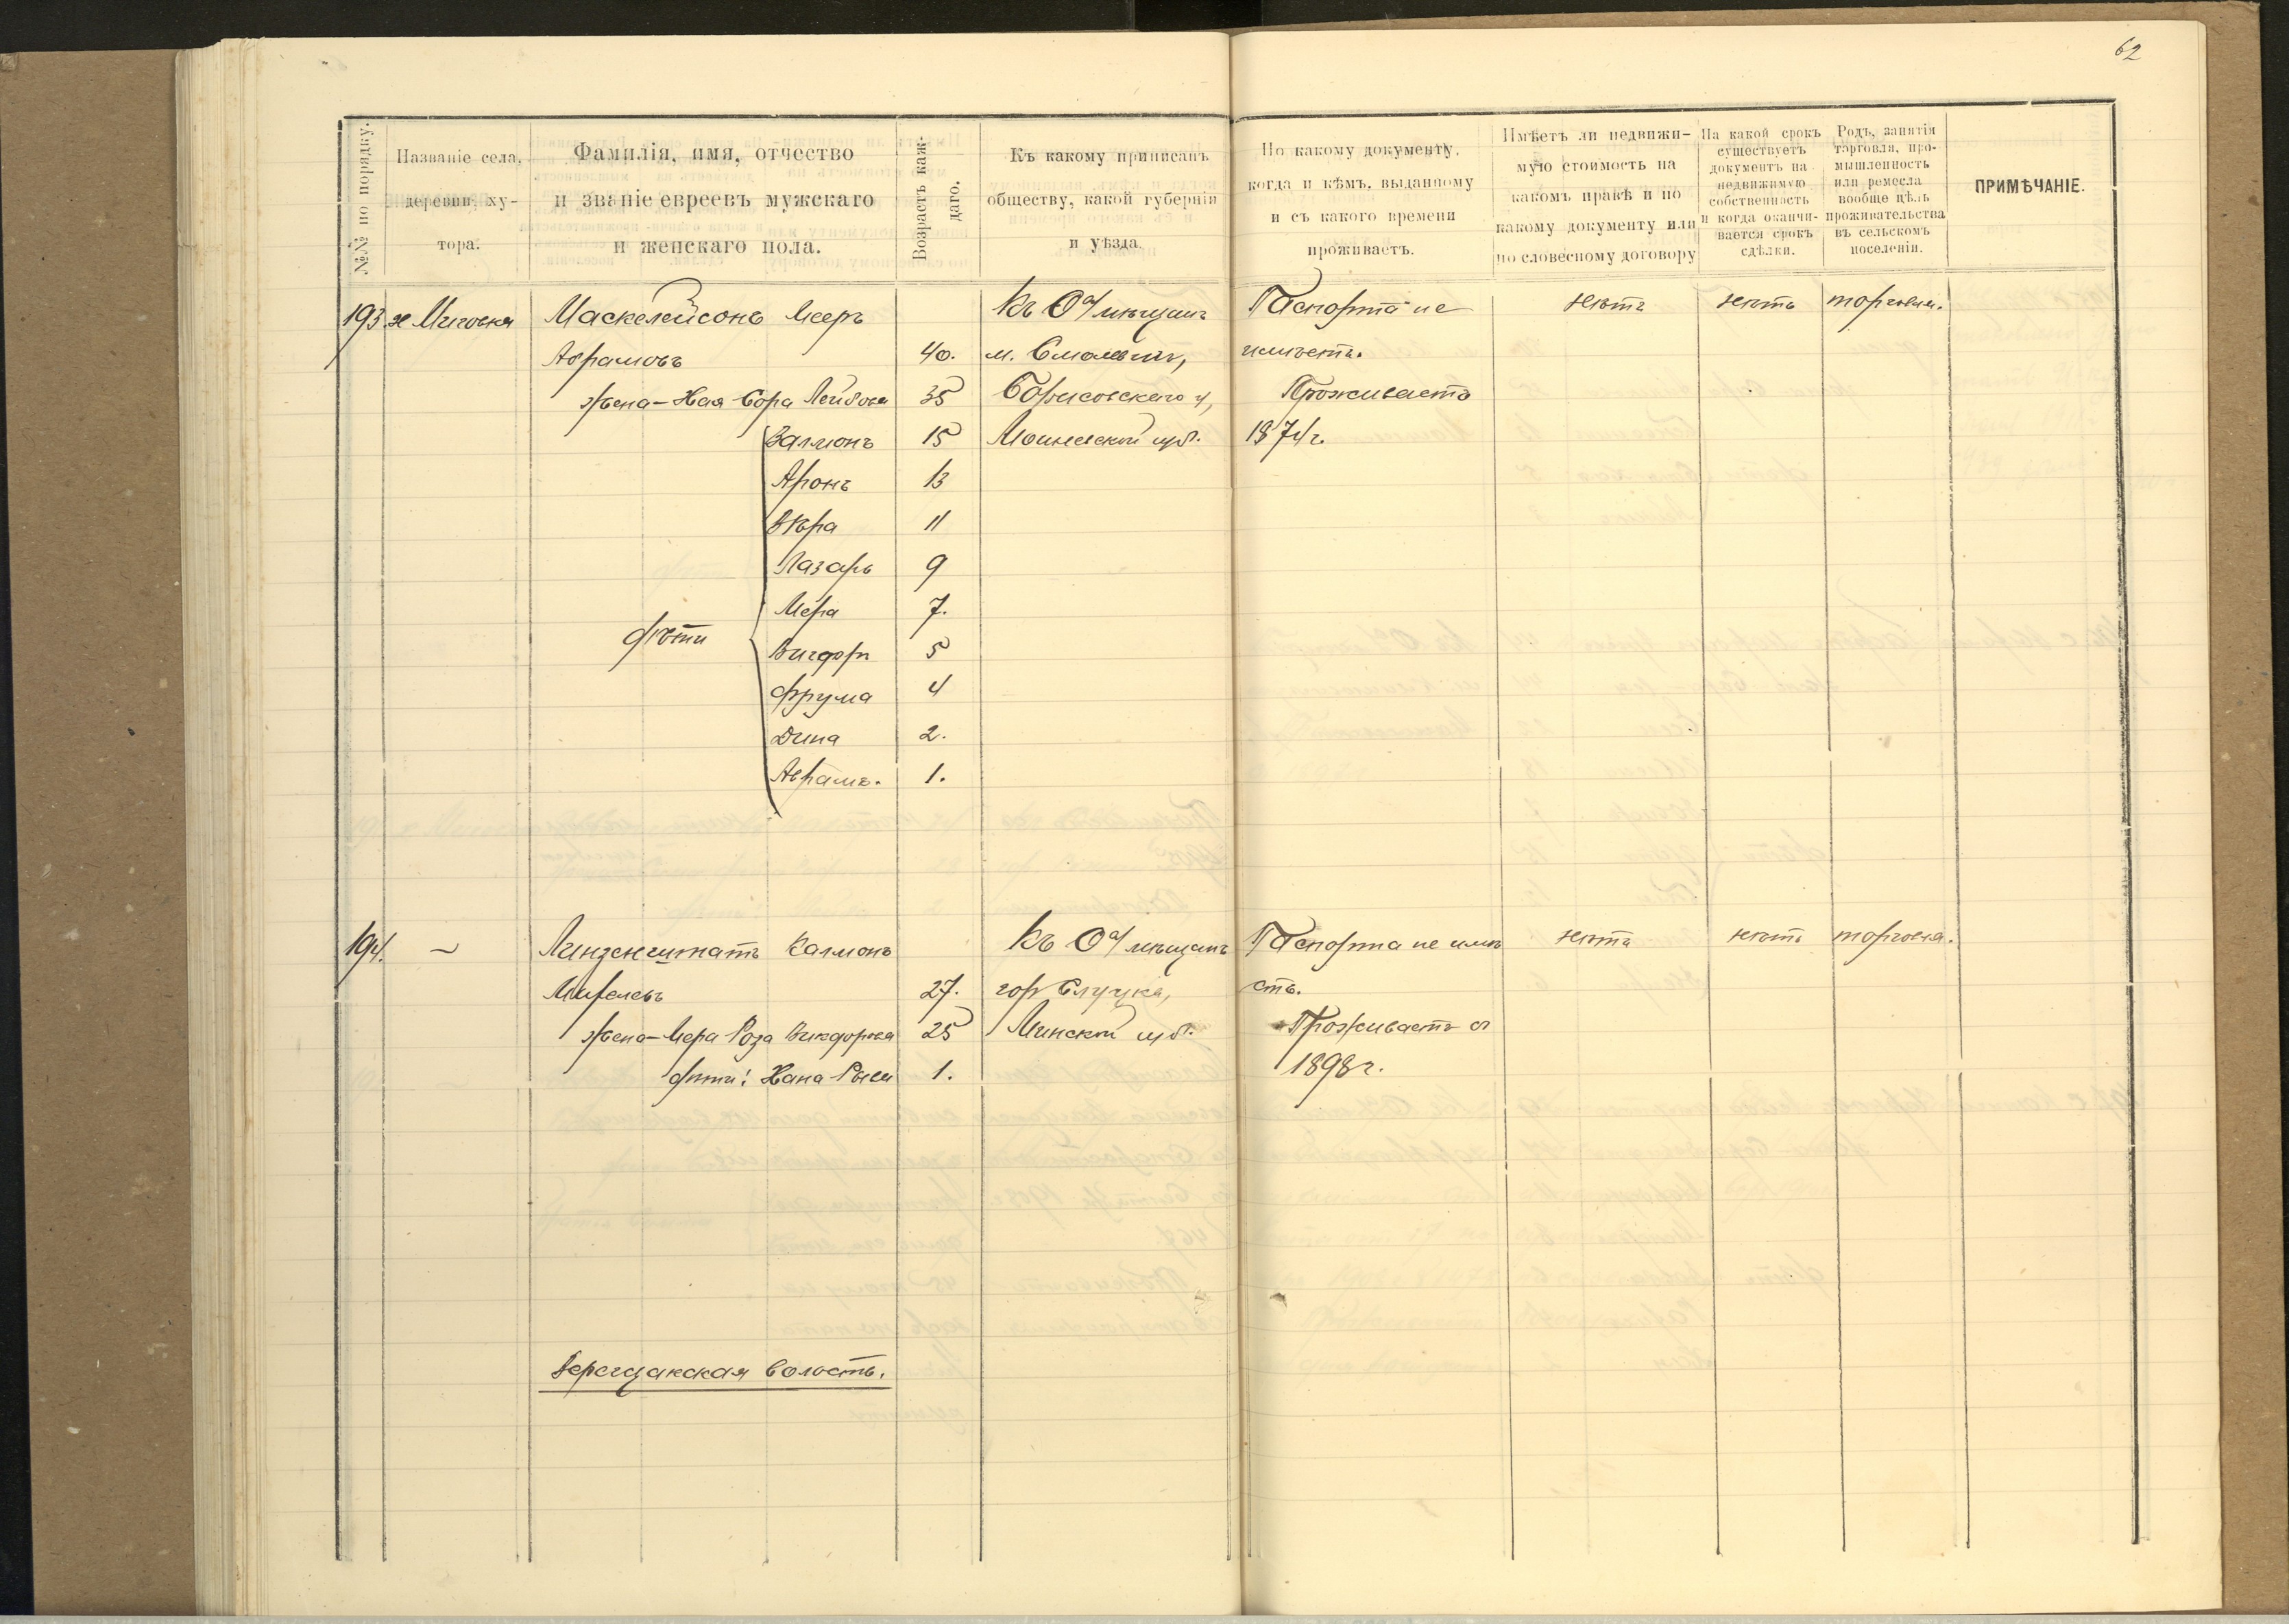 62
№№ по порядку.
Названіе села,
деревни, ху-
тора.
Фамилія, имя, отчество
и званіе евреевъ мужскаго
и женскаго пола.
Возрастъ каж-
даго.
Къ какому приписанъ
обществу, какой губерніи
и уѣзда.
По какому документу,
когда и кѣмъ, выданному
и съ какого времени
проживаетъ.
Имѣетъ ли недвижи-
мую стоимость на
какомъ правѣ и по
какому документу или
по словесному договору
На какой срокъ
существуетъ
документъ на
недвижимую
собственность
и когда оканчи-
вается срокъ
сдѣлки.
Родъ, занятія
торговля, про-
мышленность
или ремесла
вообще цѣль
проживательства
въ сельскомъ
поселеніи.
ПРИМѢЧАНІЕ.
193. Маскелейсонъ Мееръ Къ О-у мѣщанъ Паспорта не нѣтъ нѣтъ торговля.
Абрамовъ 40. м. имѣетъ.
жена - Хая-Сора Лейбова 35 Борисовскаго у, Проживаетъ
Залмонъ 15 губ. 1874 г.
Аронъ 13
Вѣра 11
Лазарь 9
Мера 7.
дѣти Вигдоръ 5
Фрума 4
Дина 2.
Абрамъ. 1.
194. — Калмонъ Къ О-у мѣщанъ Паспорта не имѣ нѣтъ нѣтъ торговля.
27. гор Слуцка, етъ.
жена - Мера Роза 25 Минской губ. Проживаетъ съ
дѣти: Хана 1. 1898 г.
Верещакская волость.